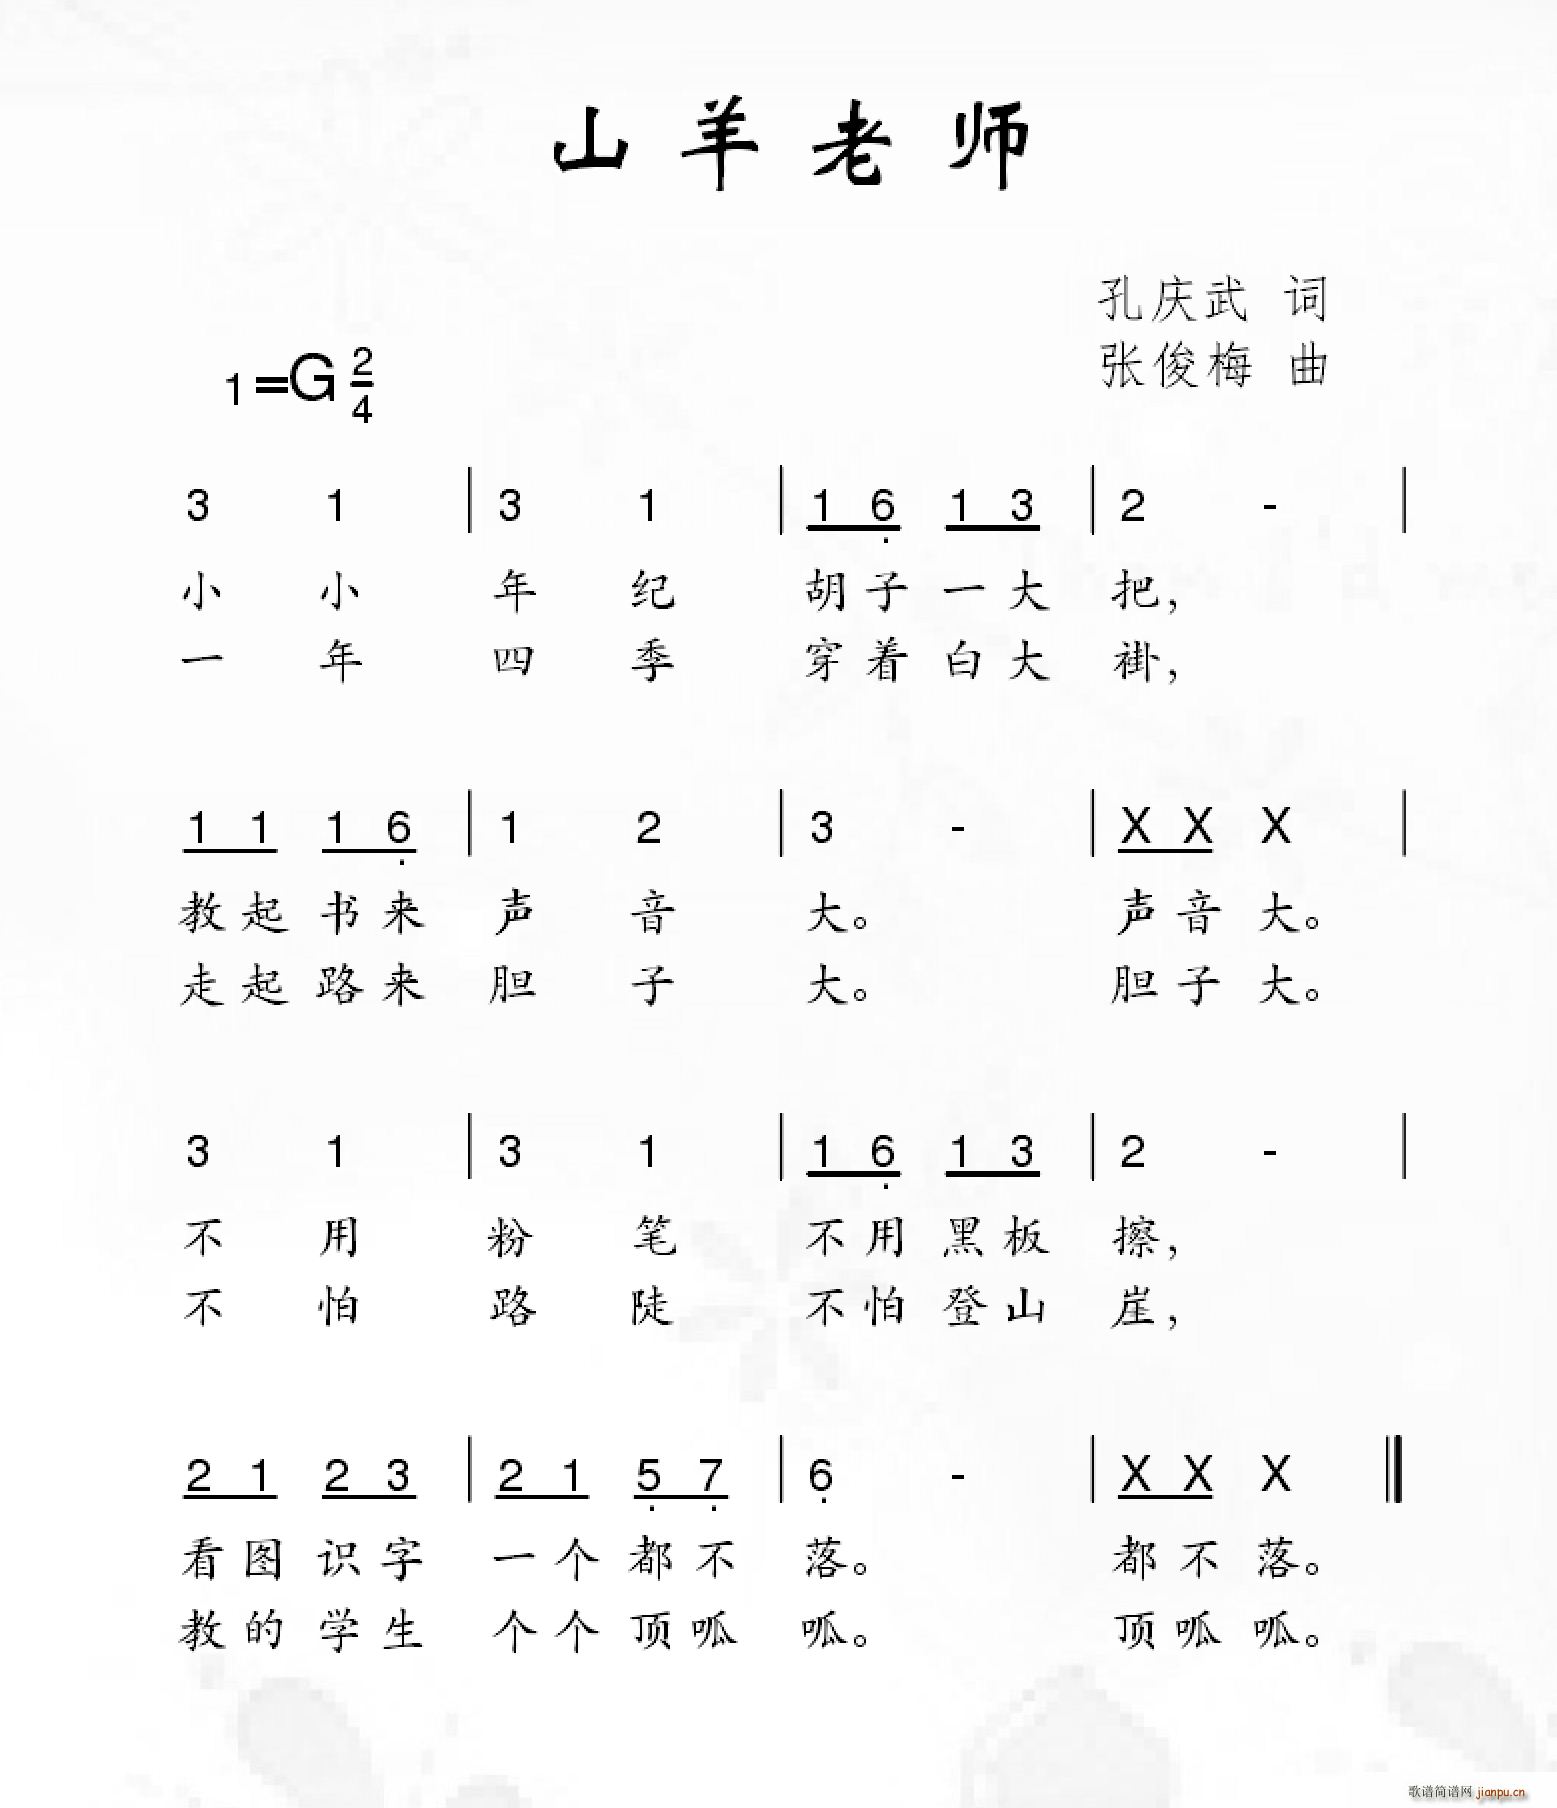 山羊老师
孔庆武 词
张俊梅 曲
1=G 2/4
3 1 | 3 1 | 1 6̣ 1 3 | 2 - |
小小年纪胡子一大把，
一年四季穿着白大褂，
1 1 1 6̣ | 1 2 | 3 - | X X X |
教起书来声音大。声音大。
走起路来胆子大。胆子大。
3 1 | 3 1 | 1 6̣ 1 3 | 2 - |
不用粉笔不用黑板擦，
不怕路陡不怕登山崖，
2 1 2 3 | 2 1 5̣ 7̣ | 6̣ - | X X X ‖
看图识字一个都不落。都不落。
教的学生个个顶呱呱。顶呱呱。
歌谱简谱网 jianpu.cn